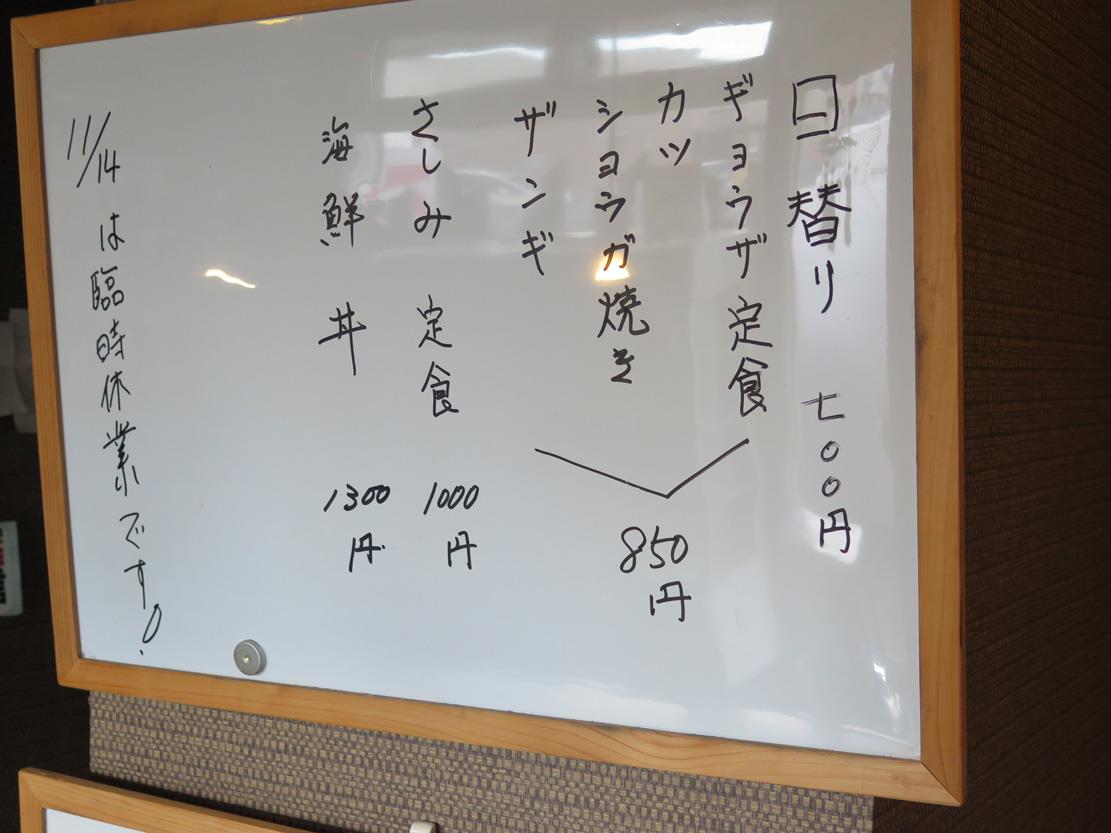 日替り 七〇〇円
ギョウザ定食
カツ
ショウガ焼き
ザンギ
850円
さしみ定食 1000円
海鮮丼 1300円
11/14は臨時休業です!